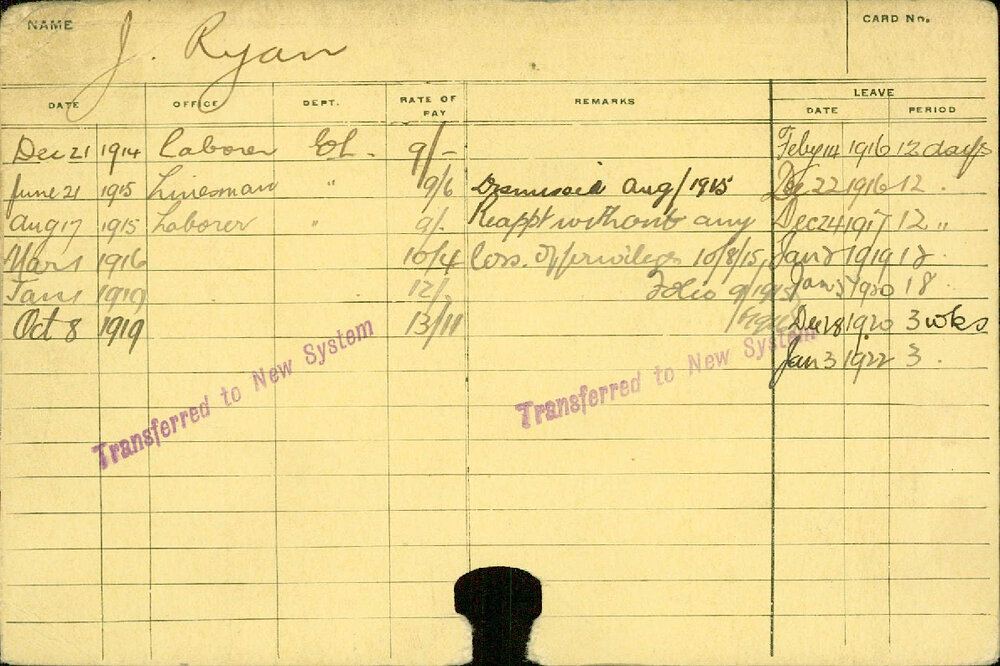 NAME J. Ryan CARD No.
DATE OFFICE DEPT. RATE OF PAY REMARKS LEAVE
DATE PERIOD
Dec 21 1914 Laborer El. 9/- Feby 14 1916 12 days
June 21 1915 Linesman " 9/6 Dismissed Aug/1915 Dec 22 1916 12 .
Aug 17 1915 Laborer " 9/- Reappt without any Dec 24 1917 12 "
Mar 1 1916 10/4 loss of privileges 10/8/15, Jan 2 1919 12
Jan 1 1919 12/- Folio 9/1915 Jan 5 1920 18
Oct 8 1919 13/11 Dec 28 1920 3 wks
Jan 3 1922 3 .
Transferred to New System
Transferred to New System